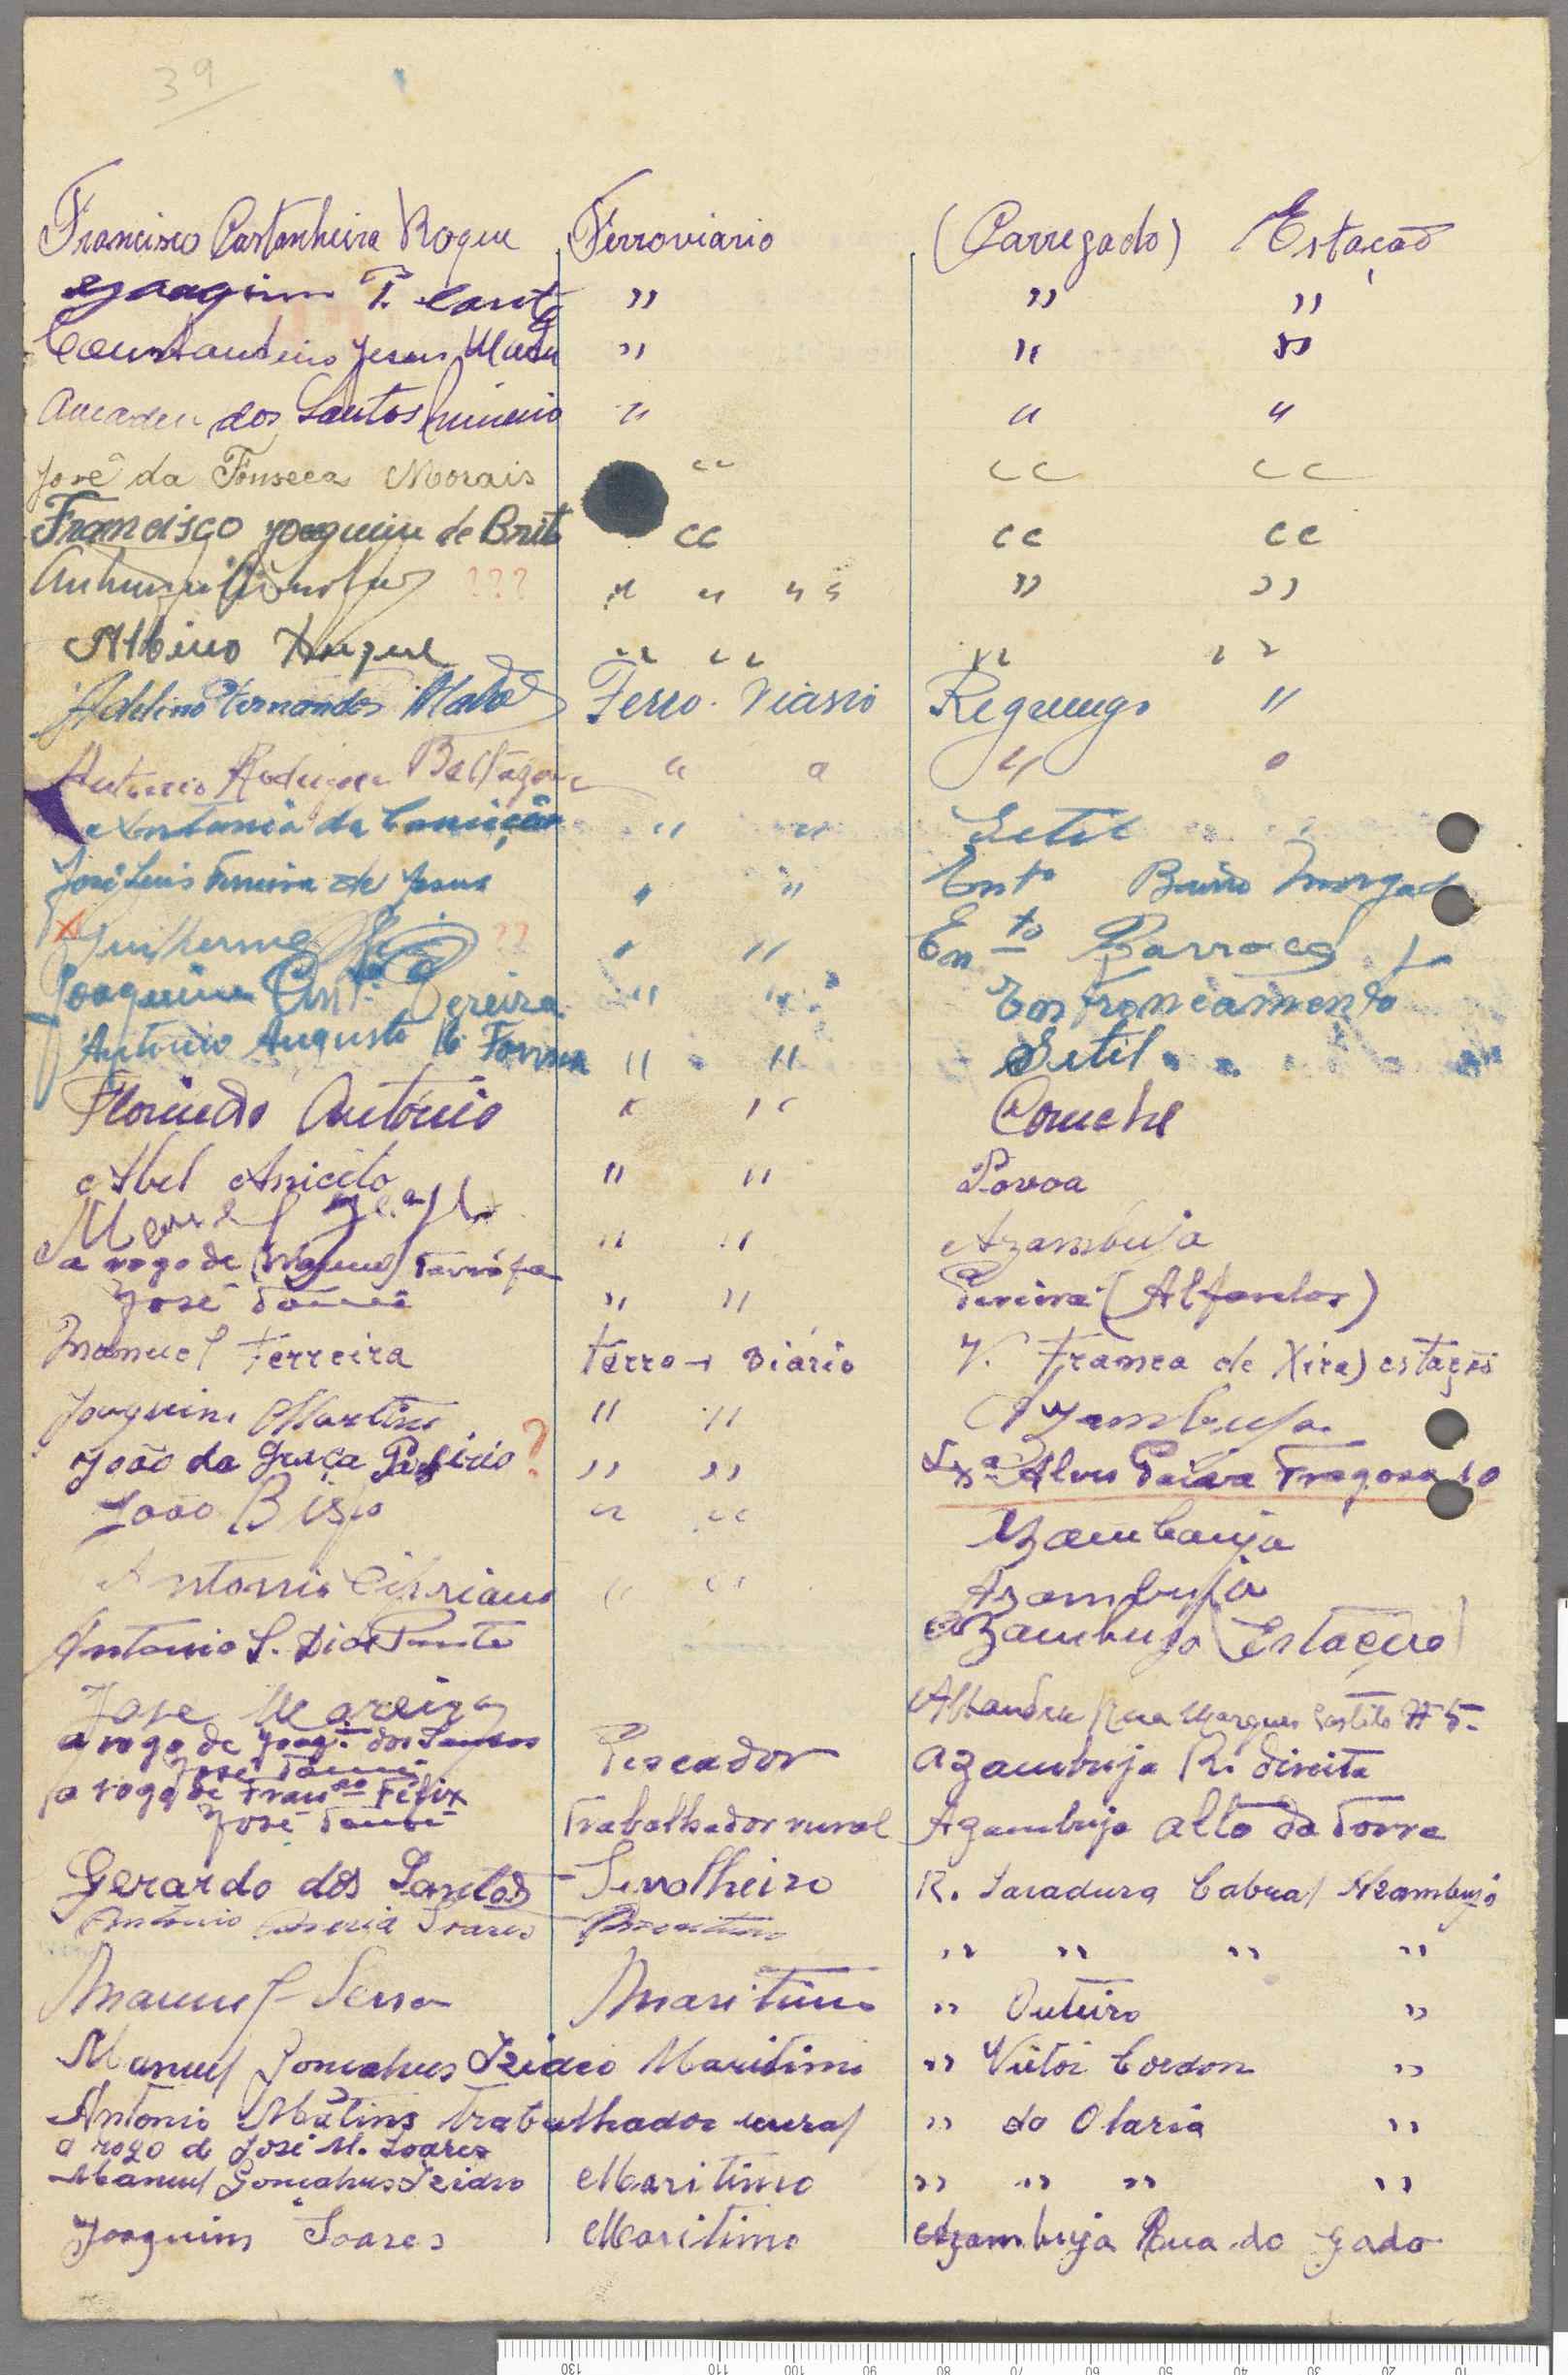 39
Francisco Castanheira Roque Ferroviario (Carregado) Estação
Joaquim T. Canto " " "
Constantino Jesus " " "
Amadeu dos Santos " " "
José da Fonseca Morais " " "
Francisco Joaquim de Brito " " "
??? " " " " "
Albino Duque " " " "
Adelino Fernandes Ferro-Viario Reguengo "
Antonio Rodrigues Baltazar " " " "
Antonio da Conceição " " Setil
José Luis Ferreira de Jesus " " Ento Bairro Morgado
x Guilherme ?? " " Ento Barroca
Joaquim Anto Pereira " " Entroncamento
Antonio Augusto " " Setil
Florindo António " " Coruche
Abel Aniceto " " Povoa
Manuel " " Azambuja
a rogo de Manuel
José Tomé " " (Alfarelos)
Manuel Ferreira Ferro-viário V. Franca de Xira) estação
Joaquim Martins " " Azambuja
João da Graça ? " " Lxa Alves Paiva Fragoso 10
João Bispo " " Azambuja
Antonio Cipriano " " Azambuja
Antonio S. Dias Azambuja (Estação)
José Moreira Alhandra Rua Marques 5
a rogo de Joaqm dos Santos
José Tomé Pescador Azambuja R. direita
a rogo de Franco Felix
José Tomé Trabalhador rural Azambuja alto da Torre
Gerardo dos Santos Serralheiro R. Sacadura Cabral Azambuja
António Maria Soares " " " "
Manuel Serra Maritimo " Outeiro "
Manuel Goncalves Izidro Maritimo " Vitor Cordon "
Antonio Mâtins trabalhador rural " da Olaria "
a rogo de José M. Soares
Manuel Goncalves Izidro Maritimo " " " "
Joaquim Soares Maritimo Azambuja Rua do gado